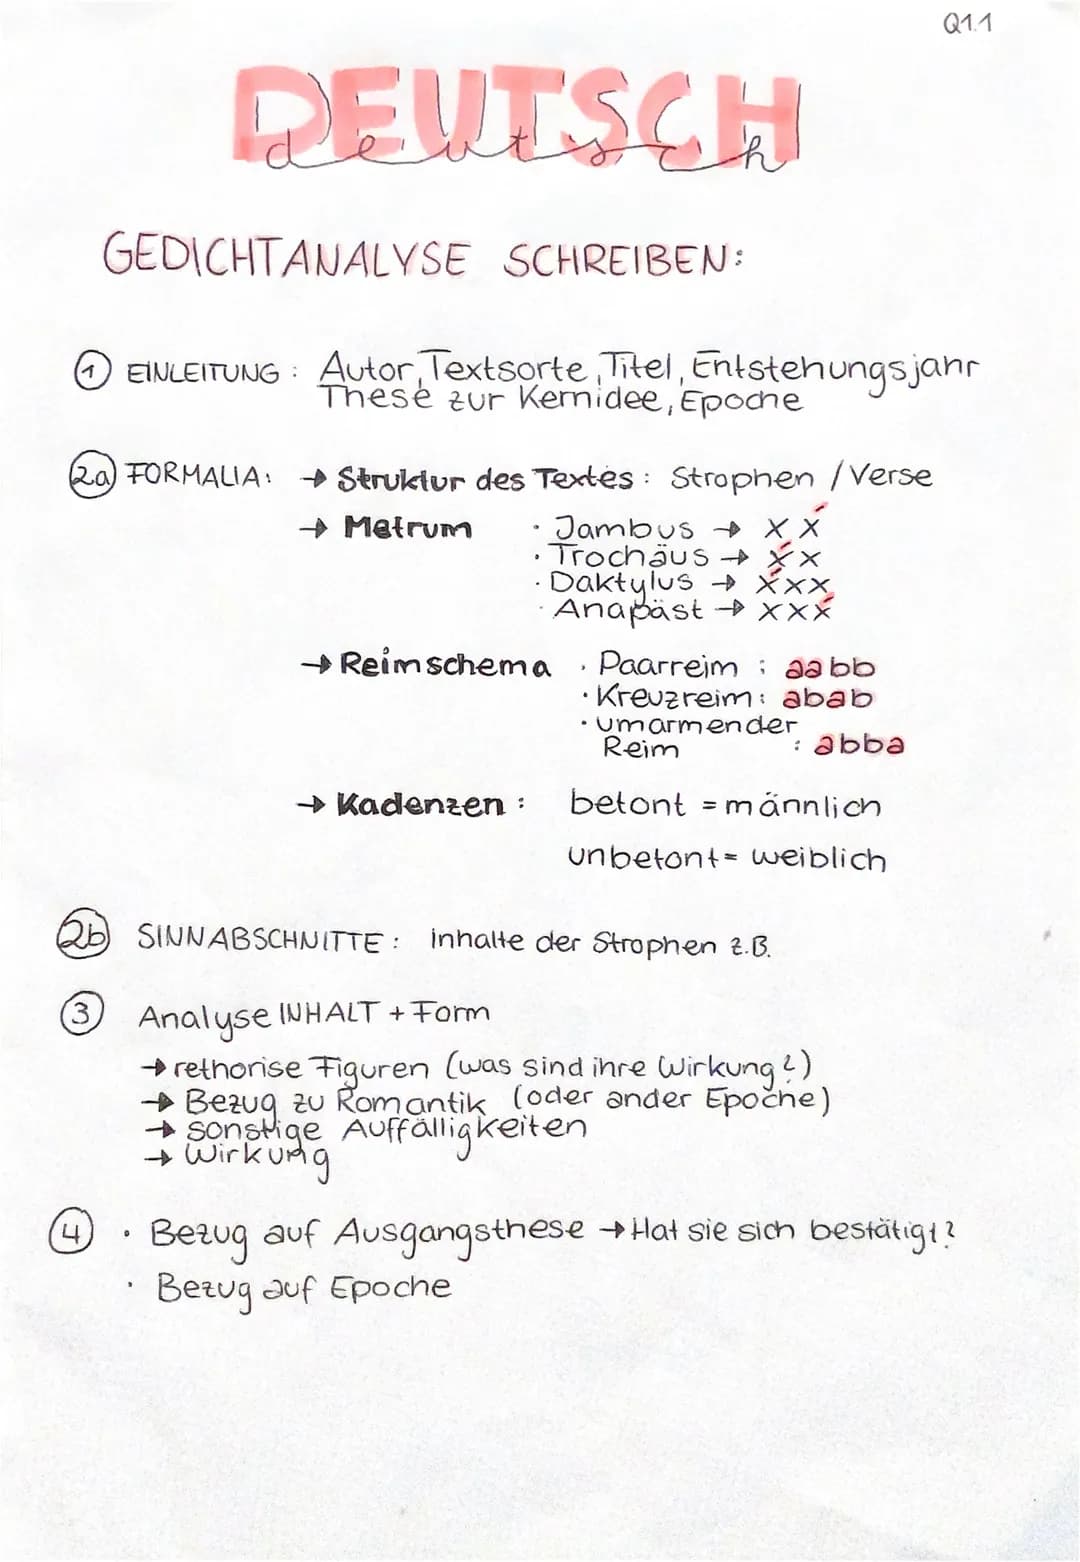 Q1.1
DEUTSCH
deutsch
GEDICHTANALYSE SCHREIBEN:
1 EINLEITUNG: Autor, Textsorte, Titel, Entstehungsjahr
These zur Kernidee, Epoche
2a FORMALIA: → Struktur des Textes: Strophen / Verse
→ Metrum · Jambus → x x́
· Trochäus → x́ x
· Daktylus → x́xx
· Anapäst → xxx́
→ Reimschema · Paarreim: aabb
· Kreuzreim: abab
· umarmender
Reim : abba
→ Kadenzen: betont = männlich
unbetont = weiblich
2b SINNABSCHNITTE: inhalte der Strophen z.B.
3 Analyse INHALT + Form
→ rethorise Figuren (was sind ihre Wirkung?)
→ Bezug zu Romantik (oder ander Epoche)
→ sonstige Auffälligkeiten
→ Wirkung
4 · Bezug auf Ausgangsthese → Hat sie sich bestätigt?
· Bezug auf Epoche